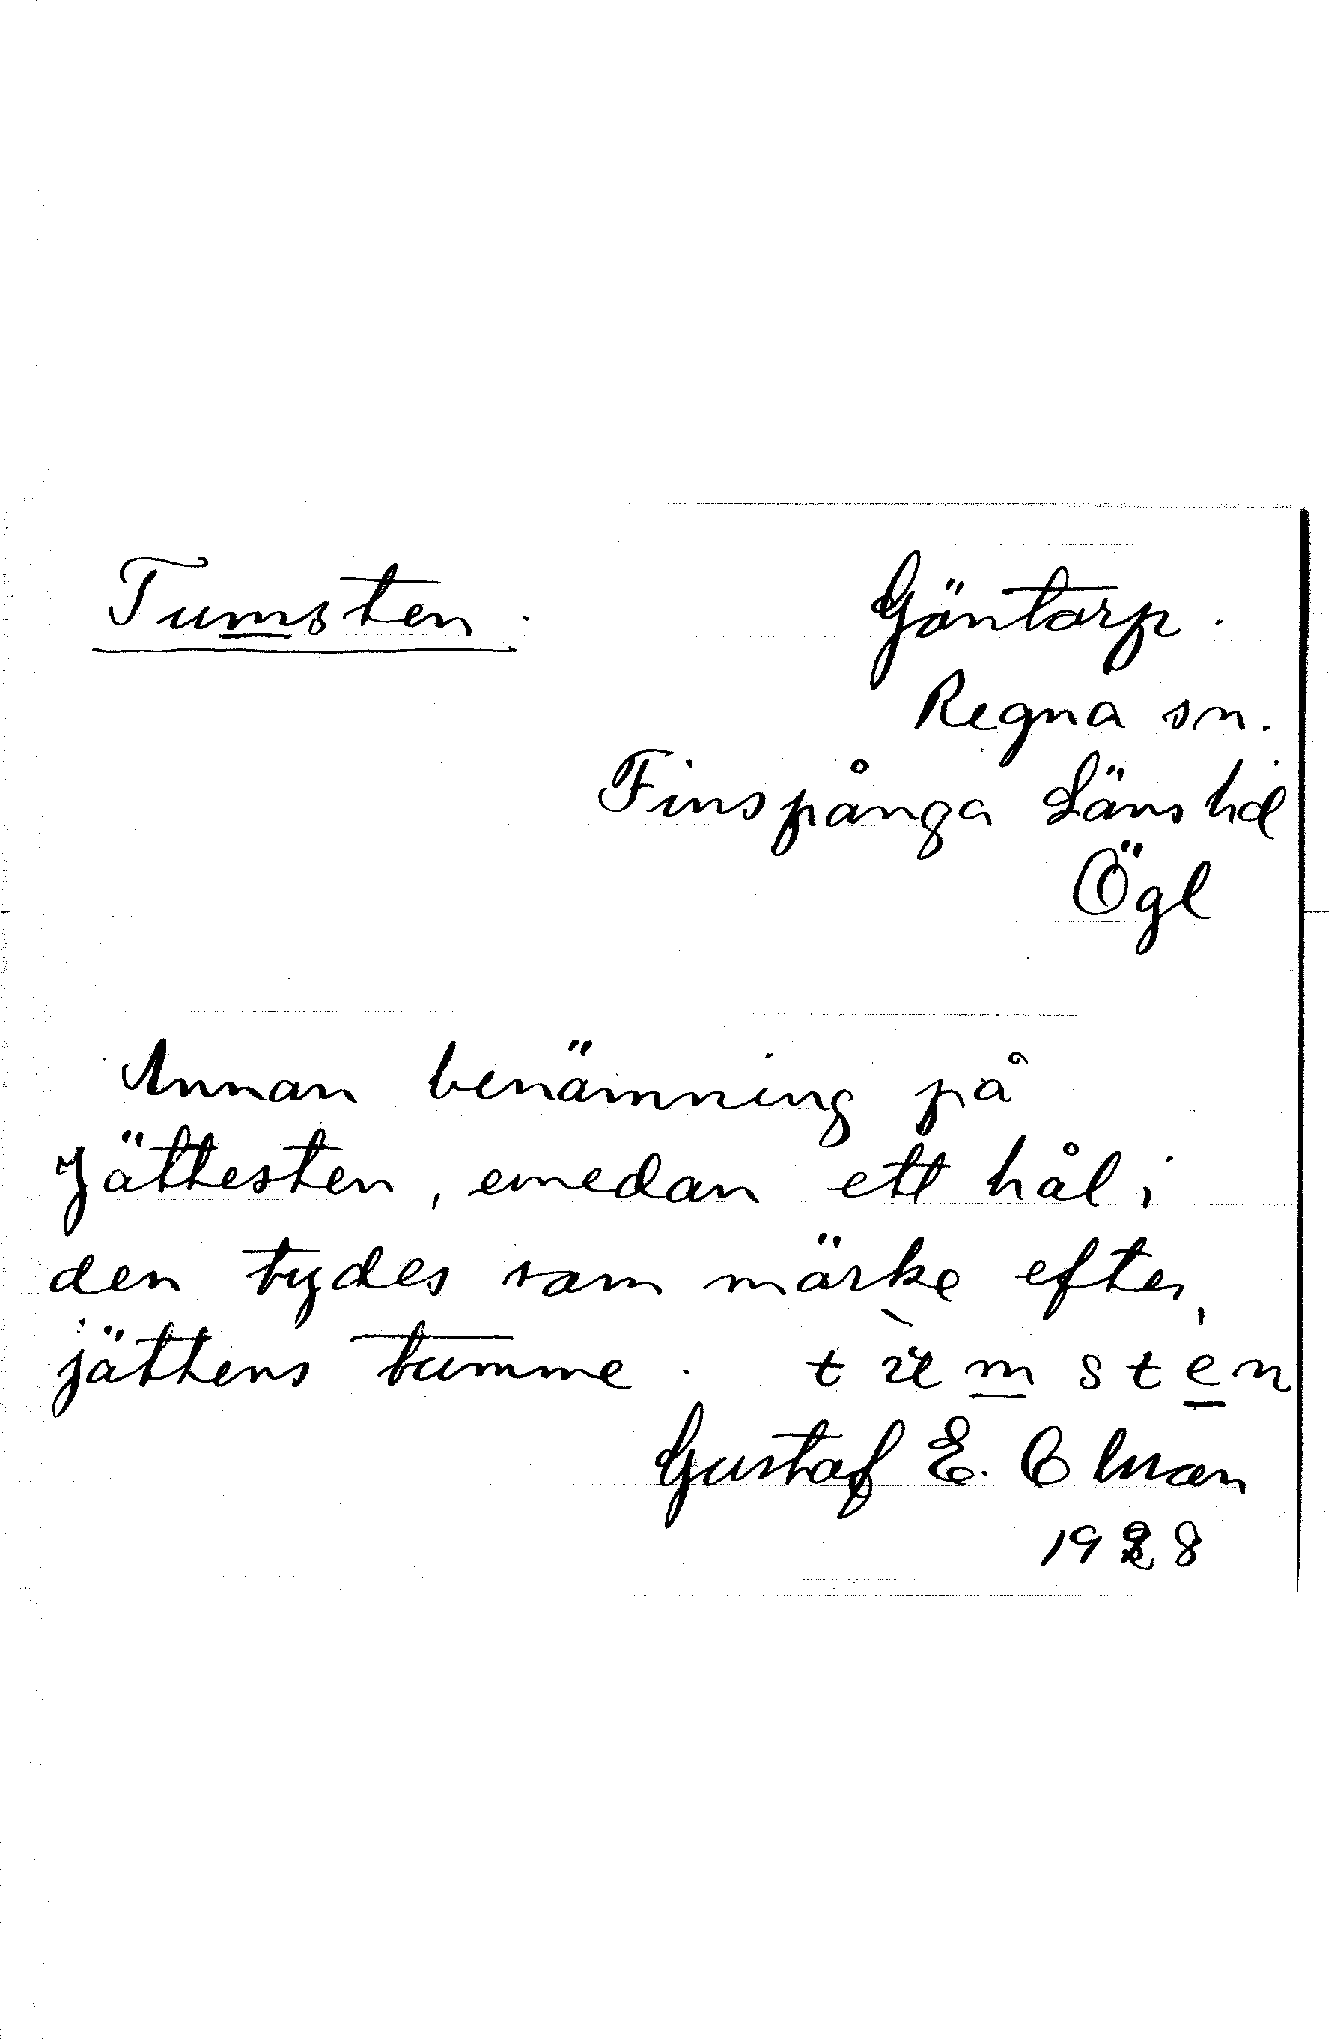 Tumsten.
Göntorp.
Regna sn.
Finspånga Läns hd
Ögl
Annan benämning på
Jättesten, emedan ett hål i
den tydes som märke efter
jättens tumme. tùmsten
Gustaf E. Olman
1928